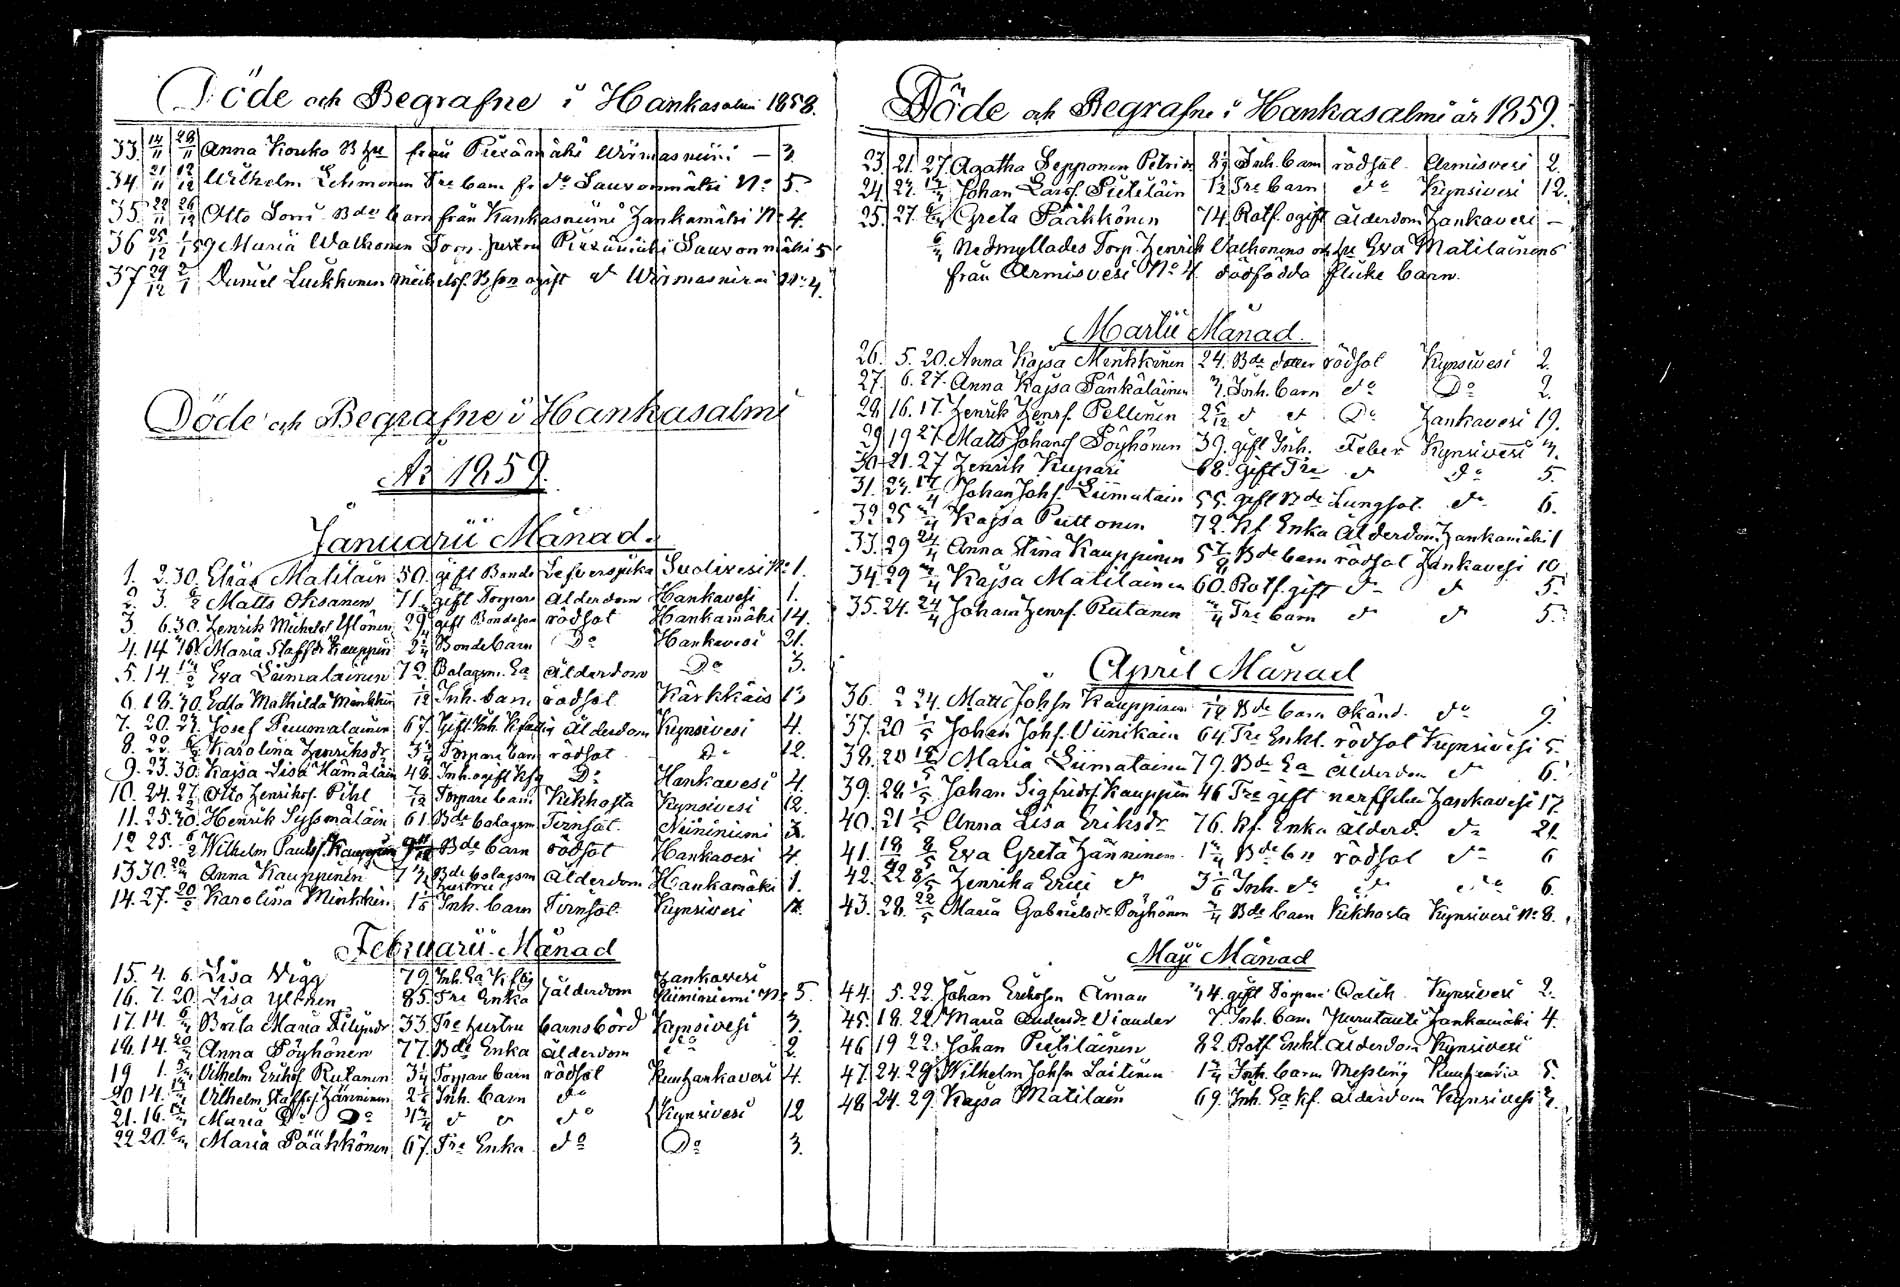 Döde och Begrafne i Hankasalmi 1858.
33. 14/11 28/11 Anna Kouko B hu från Piexämäki Wirmasniemi — 3.
34. 21/11 12/12 Wilhelm Lehmonen Tre barn fr do Sauvonmäki No 5.
35. 22/11 26/12 Otto Bde barn från Kankasniemi Zankamäki No 4.
36 25/12 1/1 59 Maria Walkonen Torp. hustru Piexämäki Sauvonmäki 5
37 29/12 2/1 Daniel Luckkonen Michelsf. B son ogift d Wirmasniemi No 4.
Döde och Begrafne i Hankasalmi
År 1859.
Januarii Månad.
1. 2. 30. Elias Matilain 50. gift Bonde Lefversjuka Suolivesi No 1.
2. 3. 6/2 Matts Oksanen 71. gift Torpare Ålderdom Hankavesi 1.
3. 6. 30. Zenrik Michelsf Ylönen 29 gift Bondeson rödsot Hankamäki 14.
4. 14 16. Maria Staffsdr Kauppin 2 1/4 Bonde barn Do Hankavesi 21.
5. 14. Eva Liimatainen 72. Bolagsm. Ea Ålderdom Do 3.
6. 18. 30. Edla Mathilda Minkkin 1/12 Inh. barn rödsot Kärkkäis 13
7. 20. 27. Josef Puumalainen 67. Gift Inh. Ålderdom Kynsivesi 4.
8. 22. 6/2 Karolina Zenriksdr 3 1/4 Torpare barn rödsot Do 12.
9. 23. 30. Kajsa Lisa Hämäläin 48. Inh. ogift Kfq Do Hankavesi 4.
10. 24. 27. Otto Zenriksf. Pihl 7/12 Torpare barn Kikhosta Kynsivesi 12.
11. 25. 30. Henrik Syssmäläin 61. Bde bolagsm Tvinsot. Niininiemi 3.
12 25. 6/2 Wilhelm Paulsf. Kauppin Bde barn rödsot Hankavesi 4.
13 30. 20/2 Anna Kauppinen Bde bolagsm hustru Ålderdom Hankamäki 1.
14. 27. 20/2 Karolina Minkkin 1 1/6 Inh. barn Tvinsot. Kynsivesi
Februarii Månad
15. 4. 6. Lisa Vigg 79. Inh. Ea Kfttig Zankavesi
16. 7. 20. Lisa Ylönen 85. Tre Enka ålderdom Niininiemi No 5.
17. 14. Brita Maria Filipsdr 33. Tre hustru barnsbörd Kynsivesi 3.
18. 14. Anna Pöyhönen 77. Bde Enka Ålderdom do 2.
19 1. Vilhelm Eriksf Rutanen 3 1/4 Torpare barn rödsot Zankavesi 4.
20 14. Vilhelm Staffsf. Zänninen Inh. barn do
21. 16. Maria Do Do d d do Kynsivesi 12
22 20. Maria Pääkkönen 67. Tre Enka do Do 3.
Döde och Begrafne i Hankasalmi år 1859.
23. 21. 27. Agatha Sepponen Petrisdr Inh. barn rödsot Armisvesi 2.
24. Johan Larsf. Pietiläin 1 1/2 Tre barn do Kynsivesi 12.
25. 27. Greta Pääkkönen 74. Rotf. ogift ålderdom Zankavesi —
Nedmyllades Torp. Zenrik Valkonens och hu Eva Matilainens
från Armisvesi No 4. dödfödda flicke barn.
Martii Månad.
26. 5. 20. Anna Kajsa Minkkinen 24. Bde dotter rödsot Kynsivesi 2.
27. 6. 27. Anna Kajsa Pänkäläinen Inh. barn do Do 2.
28. 16. 17. Zenrik Zenrf. Pellinen 2 5/12 d d Do Zankavesi 19.
29 19 27 Matts Johansf Pöyhönen 39. gift Inh. Feber Kynsivesi
30 21. 27 Zenrik Kupari 68. gift Tre d do 5.
31. Johan Johsf. Liimatain 55. gift Bde Lungsot. do 6.
32 25 Kajsa Puttonen 72. Kf. Enka Ålderdom. Zankamäki 1
33. 29 24/4 Anna Stina Kauppinen Bde barn rödsot Zankavesi 10
34. 29 Kajsa Matilainen 60. Rotf. gift d d 5.
35. 24. 24/4 Johan Zenrf. Rutanen Tre barn d d 5.
April Månad
36. 2 24. Matts Johsn Kauppinen 1/12 Bde barn Okänd. do 9.
37. 20 1/5 Johan Johsf. Viinikain 64. Tre Enkl. rödsot Kynsivesi 5.
38. 20 15/5 Maria Liimatainen 79. Bde Ea Ålderdom d 6.
39. 28. 1/5 Johan Sigfridsf. Kauppin 46 Tre gift nerffeber Zankavesi 17.
40. 21 1/5 Anna Lisa Eriksdr 76. Kf. Enka ålderd. do 21.
41. 18 8/5 Eva Greta Zänninen 1 Bde bn rödsot do 6
42. 22 8/5 Zenrika Erici d 3 1/6 Inh. do do do 6.
43. 28. 22/5 Maria Gabrielsdr Pöyhönen Bde barn Kikhosta Kynsivesi No 8.
Maji Månad
44. 5. 22. Johan Eriksson Åman 44. gift Torpare Kynsivesi 2.
45. 18. 22. Maria Andersdr Viander 7. Inh. barn Zankamäki 4.
46 19 22. Johan Pietiläinen 82. Rotf. Enkl. Ålderdom Kynsivesi
47. 24. 29. Wilhelm Johsn Laitinen Inh. barn Messling 5.
48 24. 29. Kajsa Matilain 69. Inh. Ea kf. ålderdom Kynsivesi